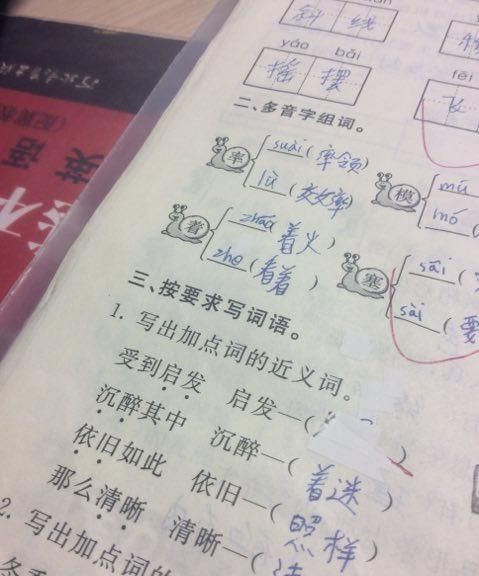 斜线
yáo bǎi
摇摆
fēi
飞
二、多音字组词。
率 suài(率领)
lǜ(效率)
模 mú
mó
着 zháo 着火)
zhe(看着)
塞 sāi(
sài(要
三、按要求写词语。
1. 写出加点词的近义词。
受到启发 启发—( )
沉醉其中 沉醉—(着迷)
依旧如此 依旧—(照样)
那么清晰 清晰—(清
2. 写出加点词的